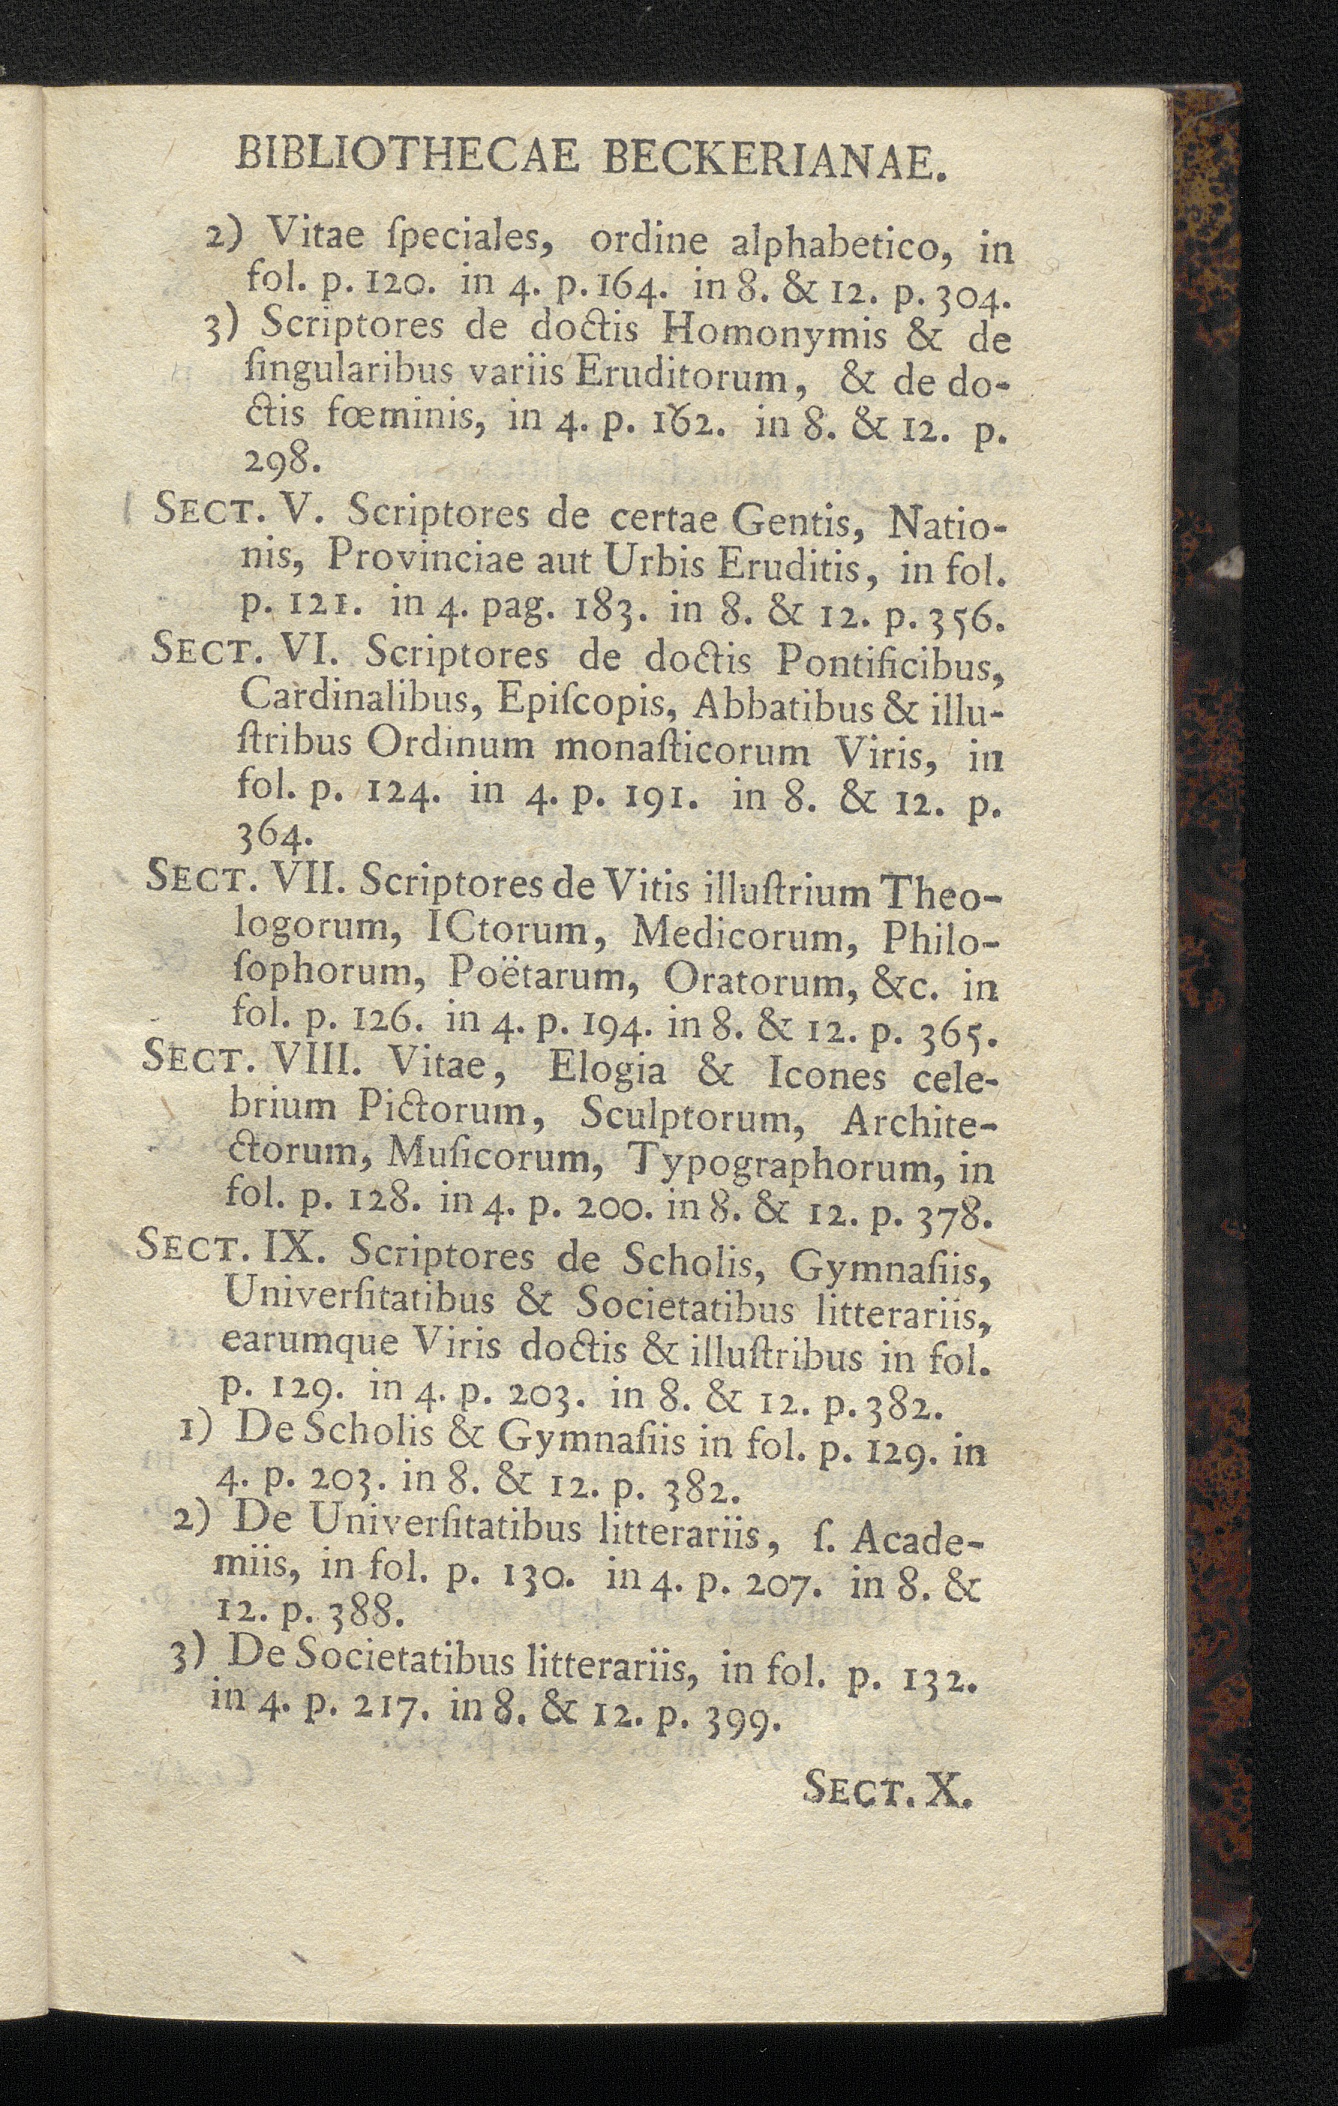 BIBLIOTHECAE BECKERIANAE.
2) Vitae ſpeciales, ordine alphabetico, in
fol. p. 120. in 4. p. 164. in 8. & 12. p. 304.
3) Scriptores de doctis Homonymis & de
ſingularibus variis Eruditorum, & de do-
ctis fœminis, in 4. p. 162. in 8. & 12. p.
298.
SECT. V. Scriptores de certae Gentis, Natio-
nis, Provinciae aut Urbis Eruditis, in fol.
p. 121. in 4. pag. 183. in 8. & 12. p. 356.
SECT. VI. Scriptores de doctis Pontificibus,
Cardinalibus, Epiſcopis, Abbatibus & illu-
ſtribus Ordinum monaſticorum Viris, in
fol. p. 124. in 4. p. 191. in 8. & 12. p.
364.
SECT. VII. Scriptores de Vitis illuſtrium Theo-
logorum, ICtorum, Medicorum, Philo-
ſophorum, Poëtarum, Oratorum, &c. in
fol. p. 126. in 4. p. 194. in 8. & 12. p. 365.
SECT. VIII. Vitae, Elogia & Icones cele-
brium Pictorum, Sculptorum, Archite-
ctorum, Muſicorum, Typographorum, in
fol. p. 128. in 4. p. 200. in 8. & 12. p. 378.
SECT. IX. Scriptores de Scholis, Gymnaſiis,
Univerſitatibus & Societatibus litterariis,
earumque Viris doctis & illuſtribus in fol.
p. 129. in 4. p. 203. in 8. & 12. p. 382.
1) De Scholis & Gymnaſiis in fol. p. 129. in
4. p. 203. in 8. & 12. p. 382.
2) De Univerſitatibus litterariis, ſ. Acade-
miis, in fol. p. 130. in 4. p. 207. in 8. &
12. p. 388.
3) De Societatibus litterariis, in fol. p. 132.
in 4. p. 217. in 8. & 12. p. 399.
SECT. X.